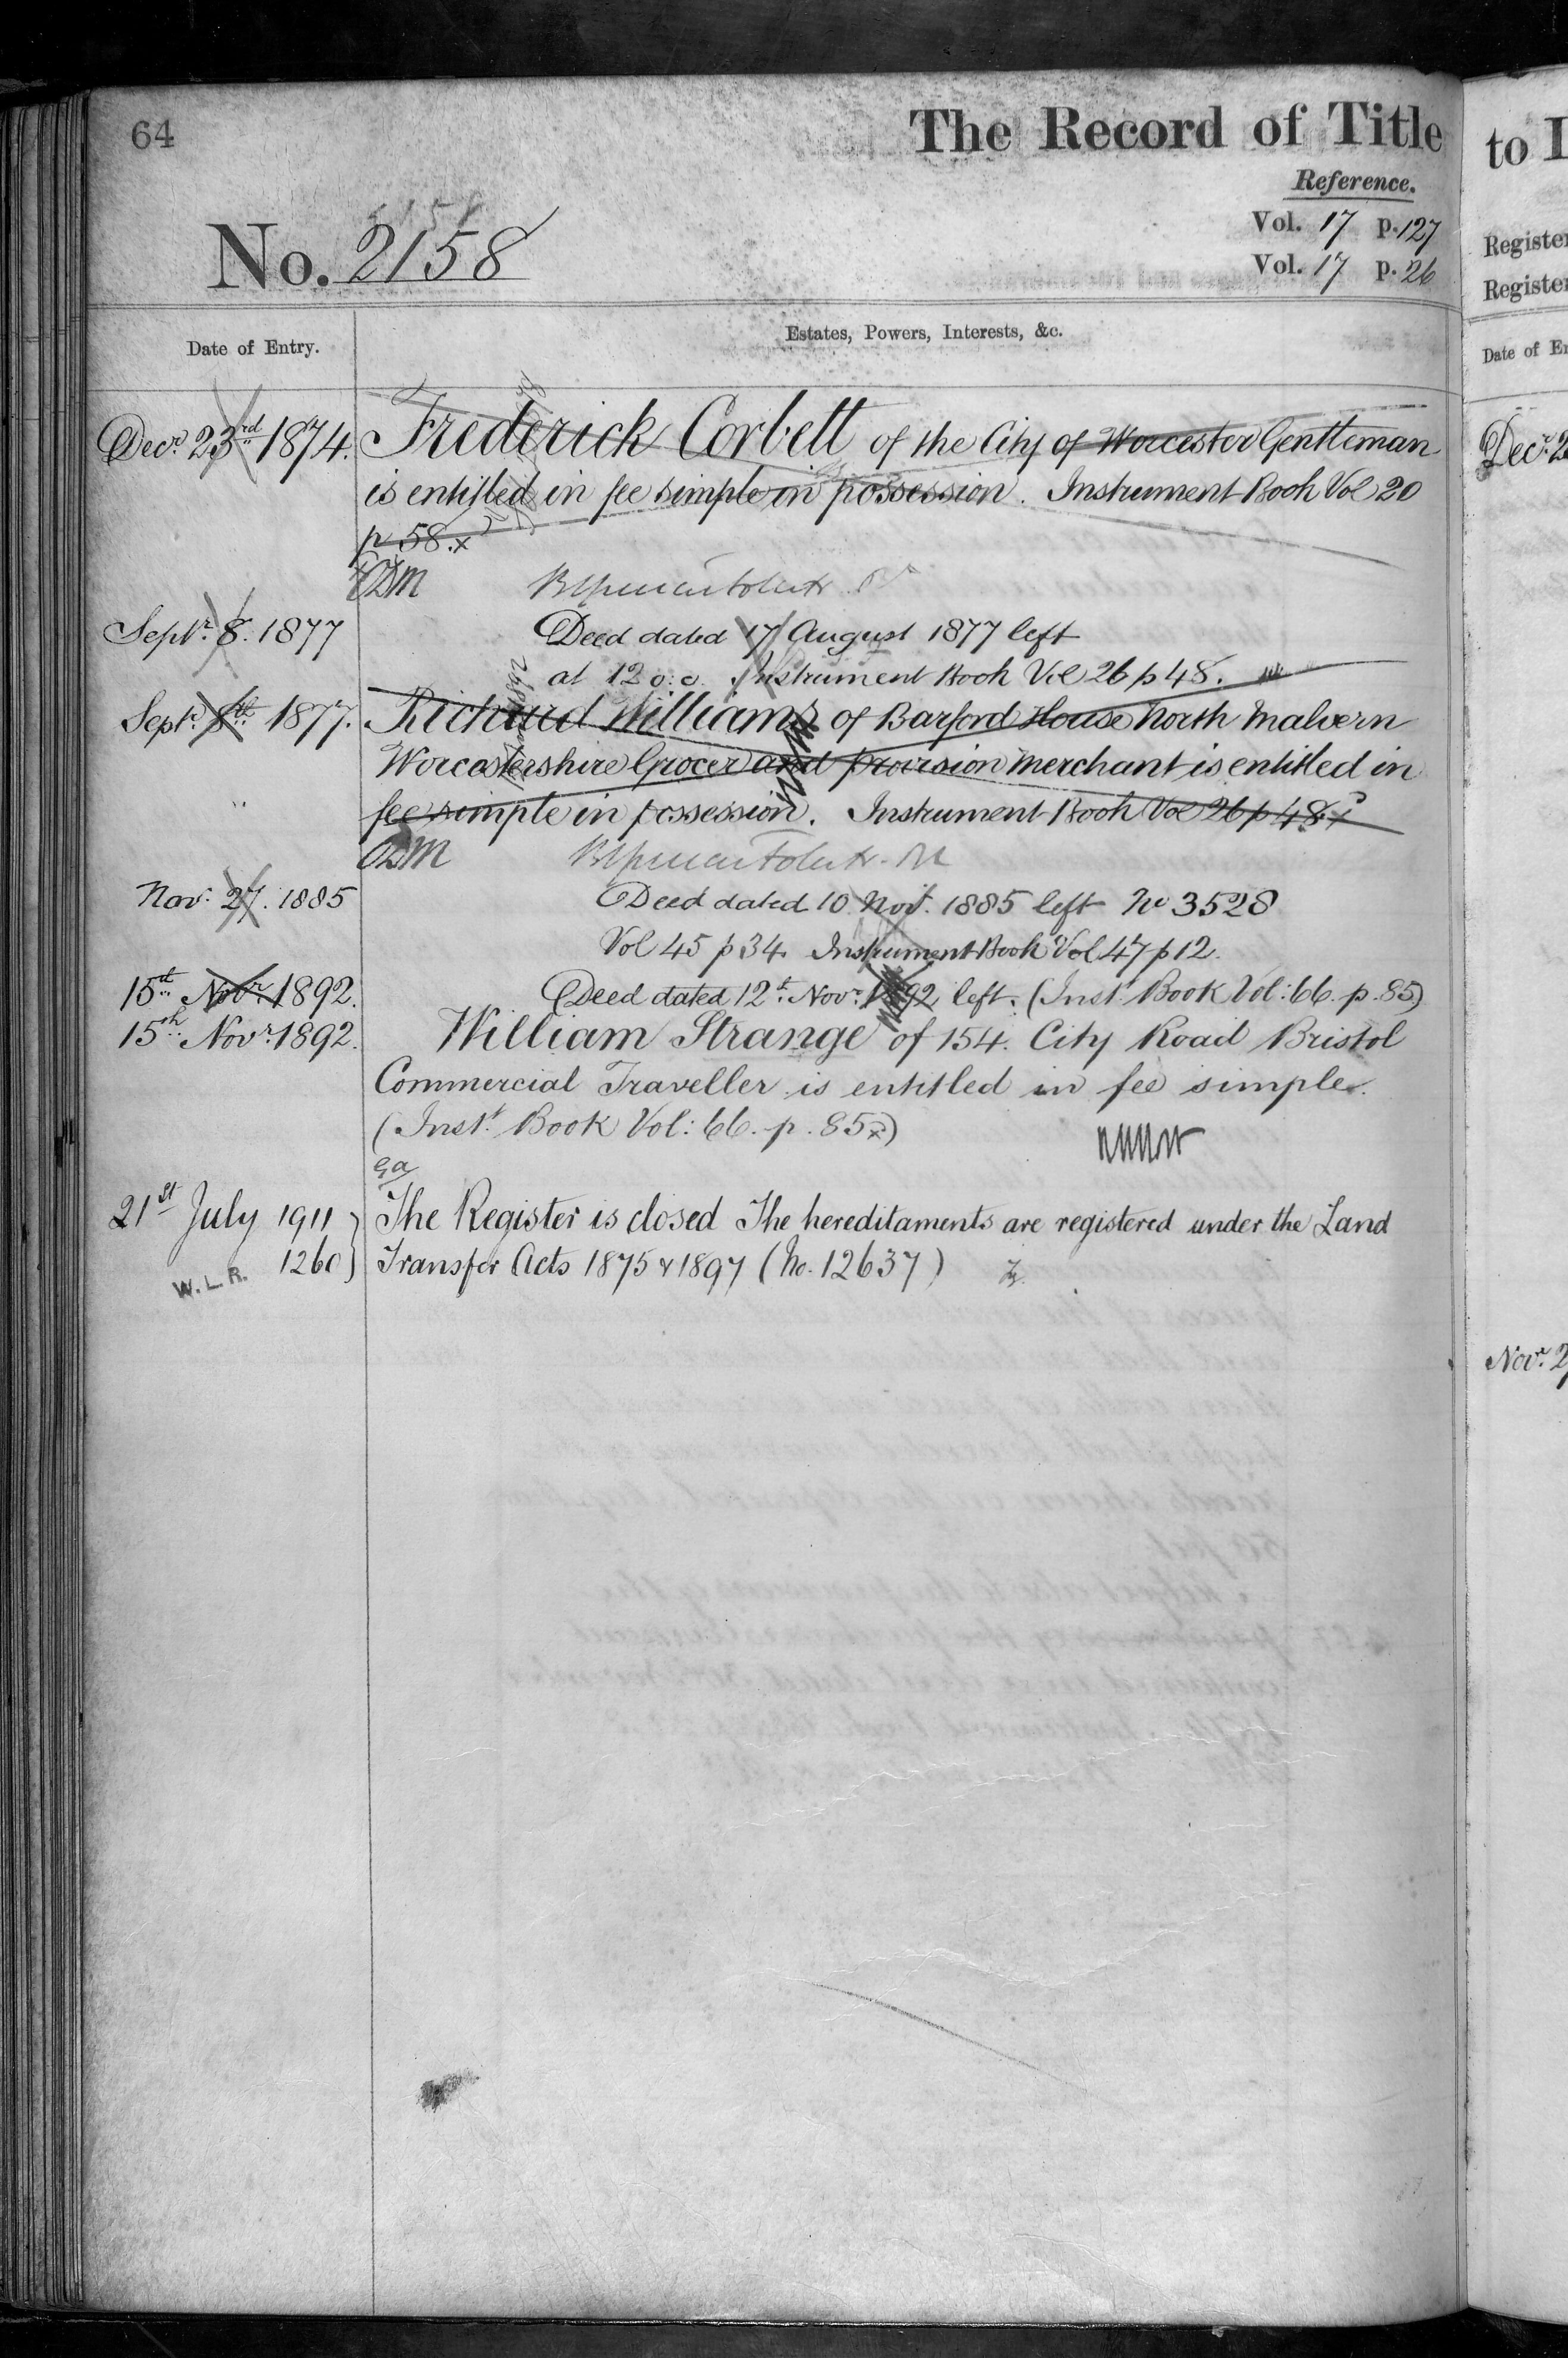 64
The Record of Title
Reference.
No. 2158
Vol. 17 p. 127
Vol. 17 p. 26
Date of Entry.
Estates, Powers, Interests, &c.
Decr. 23rd 1874. Frederick Corbett of the City of Worcester Gentleman
is entitled in fee simple in possession. Instrument Book Vol 20
p 58.x
Septr. 8. 1877 Deed dated 17 August 1877 left
at 12 o.c. Instrument Book Vol 26 p 48.
Septr. 8th 1877. Richard Williams of Barford House North Malvern
Worcestershire Grocer and provision merchant is entitled in
fee simple in possession. Instrument Book Vol 26 p 48.x
Nov. 27. 1885 Deed dated 10 Novr. 1885 left No 3528
Vol 45 p 34. Instrument Book Vol 47 p 12.
15th Novr. 1892. Deed dated 12th Novr. 1892 left. (Inst. Book Vol: 66. p. 85)
15th Novr. 1892. William Strange of 154. City Road Bristol
Commercial Traveller is entitled in fee simple.
(Inst. Book Vol: 66. p. 85x)
21st July 1911 The Register is closed The hereditaments are registered under the Land
1260 Transfer Acts 1875 & 1897 (No. 12637)
W. L. R.
to
Register
Register
Date of
Decr. 2
Novr. 2